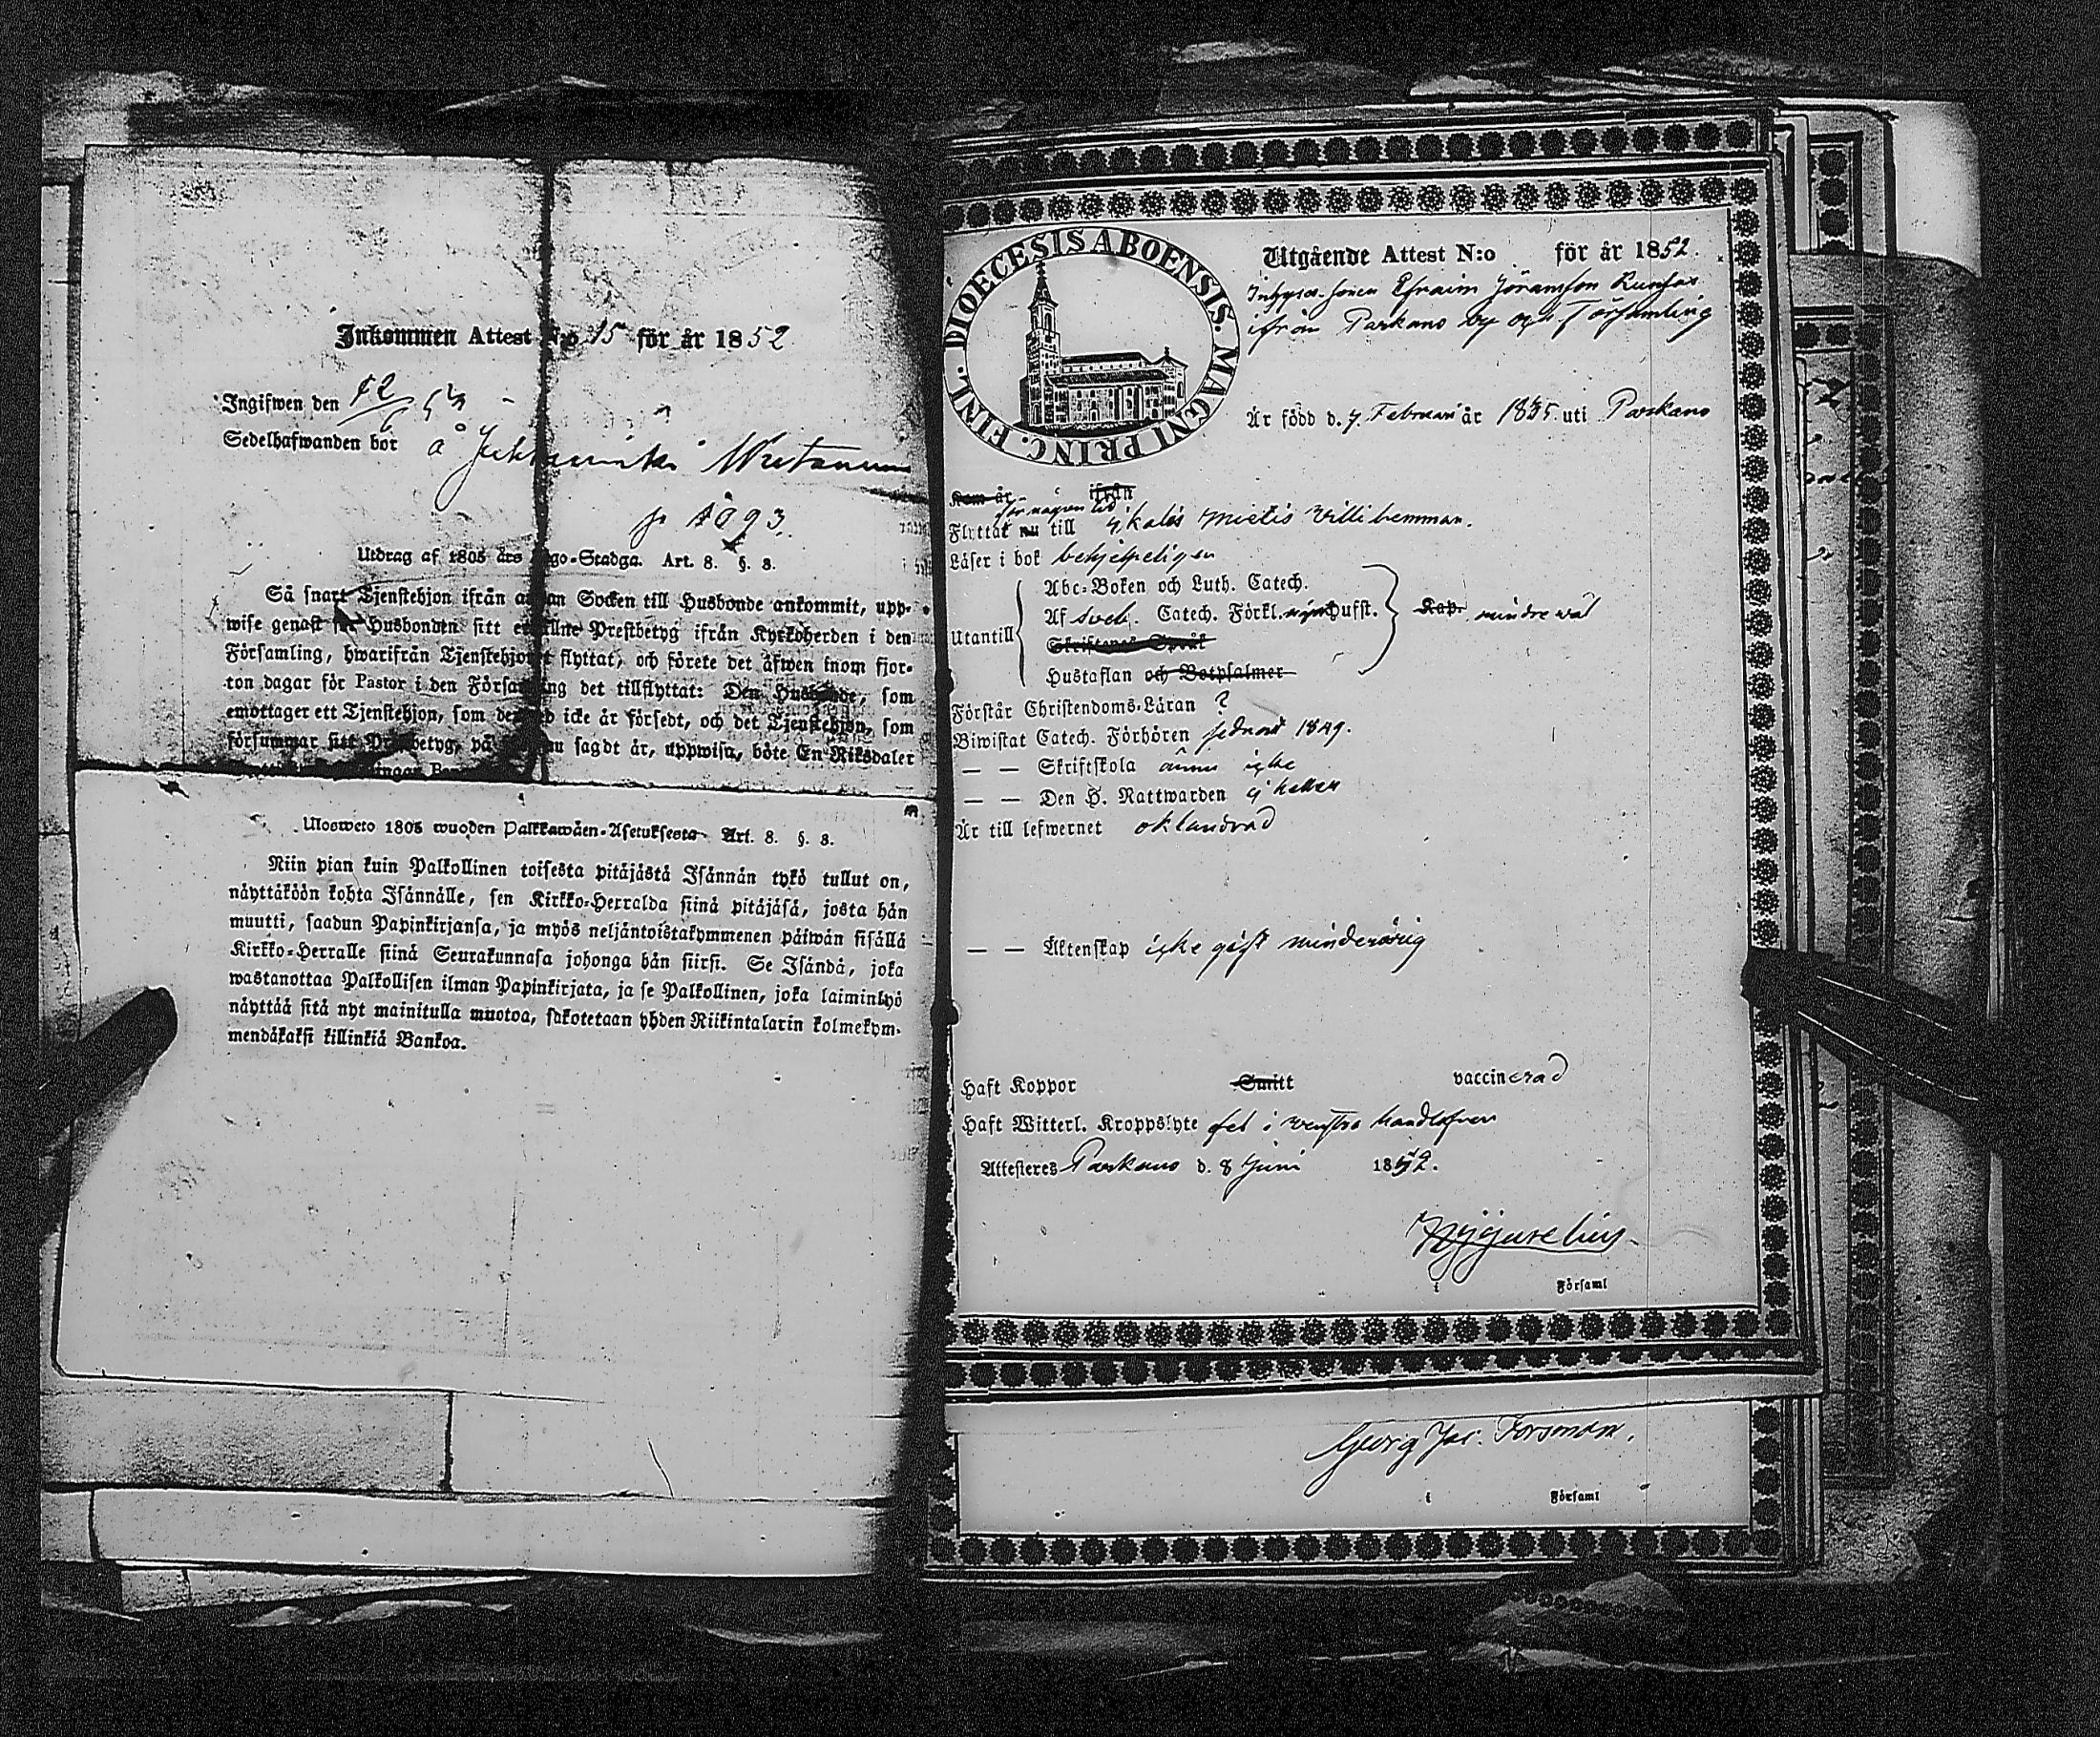 Inkommen Attest N:o 15 för år 1852
Ingifwen den 12/6 52
Sedelhafwanden bor å
p. 1093.
Utdrag af 1805 års Lego-Stadga. Art. 8. §. 8.
Så snart Tjenstehjon ifrån annan Socken till Husbonde ankommit, upp-
wise genast för Husbonden sitt erhållne Prestbetyg ifrån Kyrkoherden i den
Församling, hwarifrån Tjenstehjonet flyttat, och förete det äfwen inom fjor-
ton dagar för Pastor i den Församling det tillflyttat: Den Husbonde, som
emottager ett Tjenstehjon, som dermed icke är försedt, och det Tjenstehjon, som
försummar sitt Prestbetyg, på sagdt är, uppwisa, böte En Riksdaler
Ulosweto 1805 wuoden Palkkawäen-Asetuksesta Art. 8. §. 8.
Niin pian kuin Palkollinen toisesta pitäjästä Isännän tykö tullut on,
näyttäköön kohta Isännälle, sen Kirkko-Herralda siinä pitäjäsä, josta hän
muutti, saadun Papinkirjansa, ja myös neljäntoistakymmenen päiwän sisällä
Kirkko-Herralle siinä Seurakunnasa johonga hän siirsi. Se Isändä, joka
wastanottaa Palkollisen ilman Papinkirjata, ja se Palkollinen, joka laiminlyö
näyttää sitä nyt mainitulla muotoa, sakotetaan yhden Riikintalarin kolmekym-
mendäkaksi killinkiä Bankoa.
DIOECESIS ABOENSIS. MAGNI PRINC. FINL.
Utgående Attest N:o för år 1852.
Efraim Jöransson
ifrån Parkano by och Församling
Är född d. 7 Februari år 1835 uti Parkano
Kom år ifrån
för någon tid
Flyttat nu till Ikalis Mietis Villi hemman.
Läser i bok behjelpeligen
Utantill
Abc-Boken och Luth. Catech.
Af Sveb. Catech. Förkl. Hufst.
Skriftenes Språk
Hustaflan och Botpsalmer
Kap. mindre wäl
Förstår Christendoms-Läran ?
Biwistat Catech. Förhören sednast 1849.
— — Skriftskola ännu icke
— — Den H. Nattwarden ej heller
Är till lefwernet oklandrad
— — Äktenskap icke gift minderårig
Haft Koppor Smitt vaccinerad
Haft Witterl. Kroppslyte fel i wenstra handlofwen
Attesteras Parkano d. 8 Juni 1852.
i Församl
Georg Jac. Forsman.
i Församl